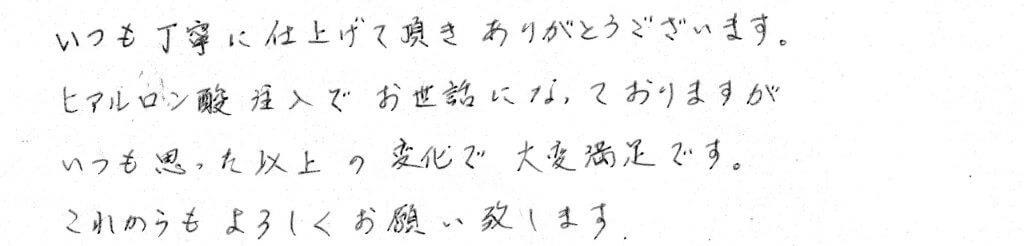 いつも丁寧に仕上げて頂きありがとうございます。
ヒアルロン酸注入でお世話になっておりますが
いつも思った以上の変化で大変満足です。
これからもよろしくお願い致します.